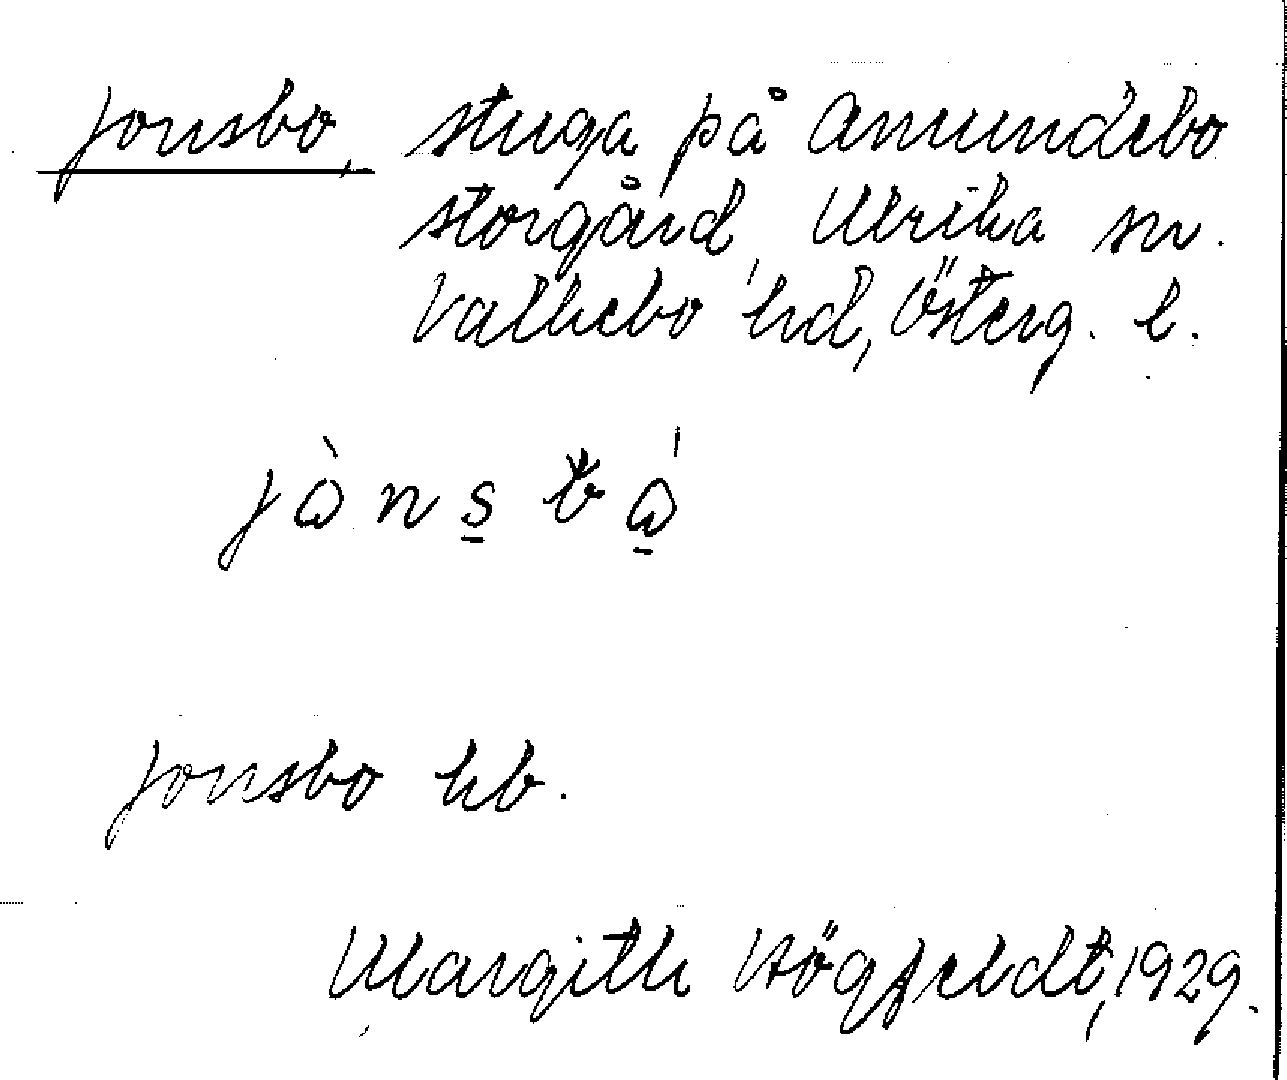 Jonsbo, stuga på Amundebo
storgård, Ulrika sn.
Valkebo hd, Österg. l.
jònsbó
Jonsbo hb.
Margith Högfeldt, 1929.